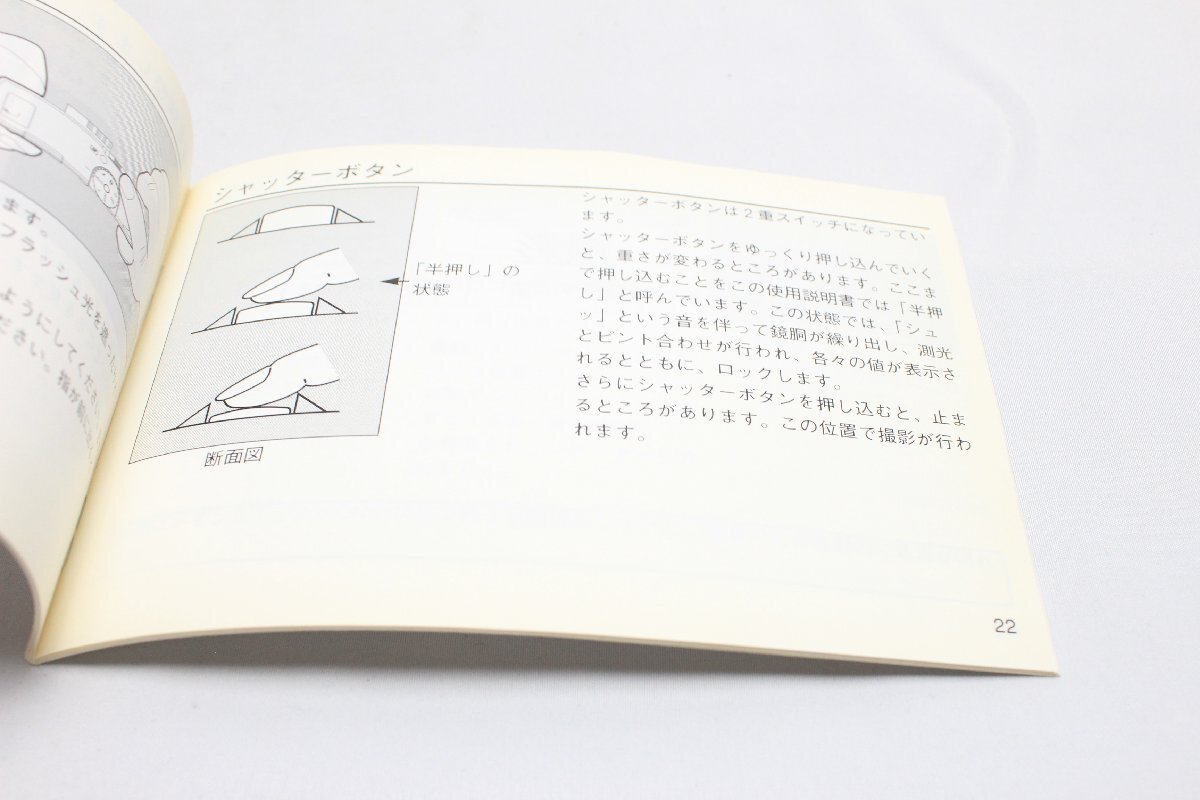 ます。
フラッシュ光を遮った
ようにしてくださ
ださい。指が前に
シャッターボタン
「半押し」の
状態
断面図
シャッターボタンは2重スイッチになってい
ます。
シャッターボタンをゆっくり押し込んでいく
と、重さが変わるところがあります。ここま
で押し込むことをこの使用説明書では「半押
し」と呼んでいます。この状態では、「シュ
ッ」という音を伴って鏡胴が繰り出し、測光
とピント合わせが行われ、各々の値が表示さ
れるとともに、ロックします。
さらにシャッターボタンを押し込むと、止ま
るところがあります。この位置で撮影が行わ
れます。
22